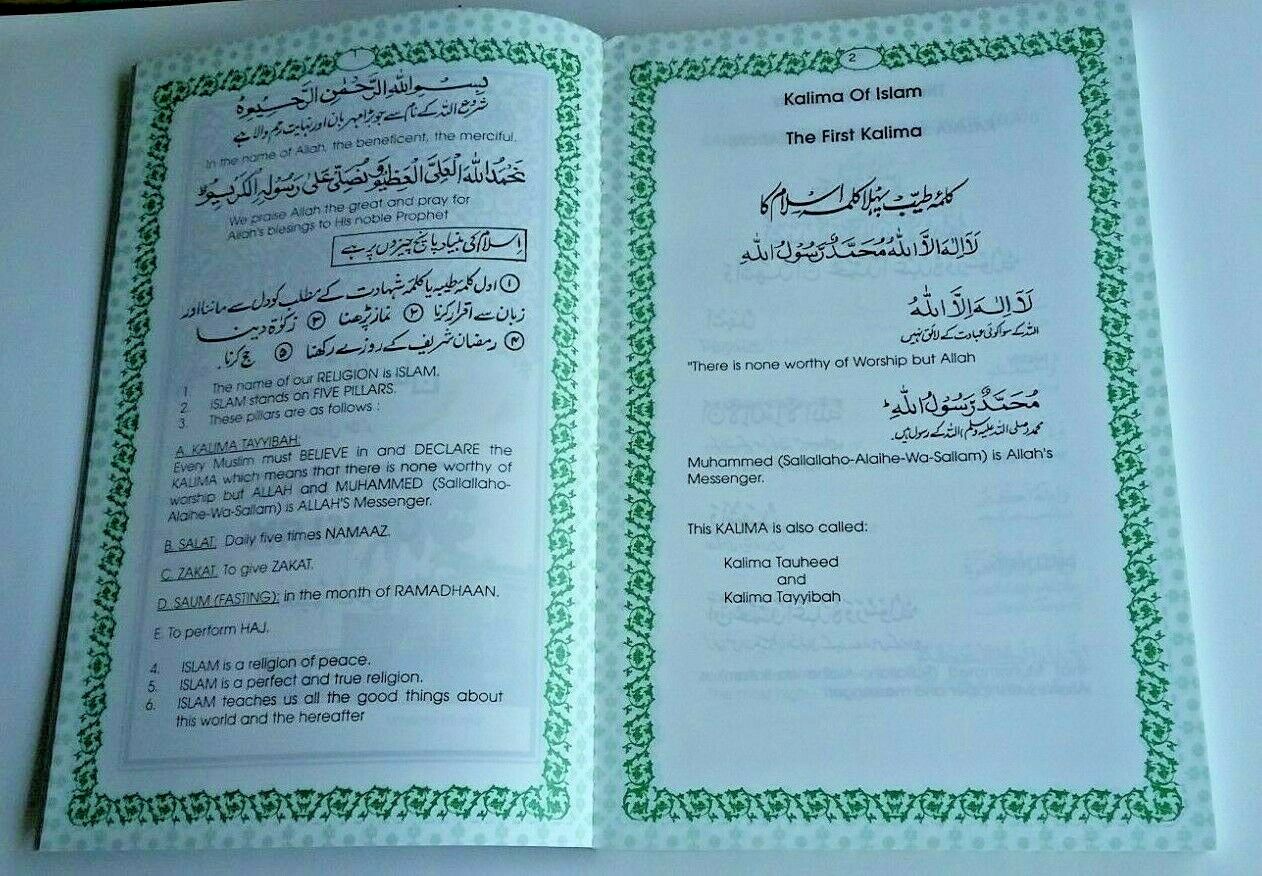 1
بسم الله الرحمن الرحيم
شروع اللہ کے نام سے جو بڑا مہربان اور نہایت رحم والا ہے
In the name of Allah, the beneficent, the merciful.
نحمد الله العلى العظيم ونصلى على رسوله الكريم
We praise Allah the great and pray for
Allah's blesings to His noble Prophet
اسلام کی بنیاد پانچ چیزوں پر ہے
① اول کلمہ طیبہ یا کلمہ شہادت کے مطلب کو دل سے ماننا اور
زبان سے اقرار کرنا ② نماز پڑھنا ③ زکوٰۃ دینا
④ رمضان شریف کے روزے رکھنا ⑤ حج کرنا.
1 The name of our RELIGION is ISLAM.
2. ISLAM stands on FIVE PILLARS.
3. These pillars are as follows :
A. KALIMA TAYYIBAH:
Every Muslim must BELIEVE in and DECLARE the
KALIMA which means that there is none worthy of
worship but ALLAH and MUHAMMED (Sallallaho-
Alaihe-Wa-Sallam) is ALLAH'S Messenger.
B. SALAT: Daily five times NAMAAZ.
C. ZAKAT: To give ZAKAT.
D. SAUM (FASTING): in the month of RAMADHAAN.
E. To perform HAJ.
4. ISLAM is a religion of peace.
5. ISLAM is a perfect and true religion.
6. ISLAM teaches us all the good things about
this world and the hereafter
2
Kalima Of Islam
The First Kalima
کلمۂ طیّب پہلا کلمہ اسلام کا
لَا اِلٰهَ اِلَّا اللهُ مُحَمَّدٌ رَّسُوْلُ اللهِ
لَا اِلٰهَ اِلَّا اللهُ
اللہ کے سوا کوئی عبادت کے لائق نہیں
"There is none worthy of Worship but Allah
مُحَمَّدٌ رَّسُوْلُ اللهِ ؕ
محمد (صلی اللہ علیہ وسلم) اللہ کے رسول ہیں.
Muhammed (Sallallaho-Alaihe-Wa-Sallam) is Allah's
Messenger.
This KALIMA is also called:
Kalima Tauheed
and
Kalima Tayyibah